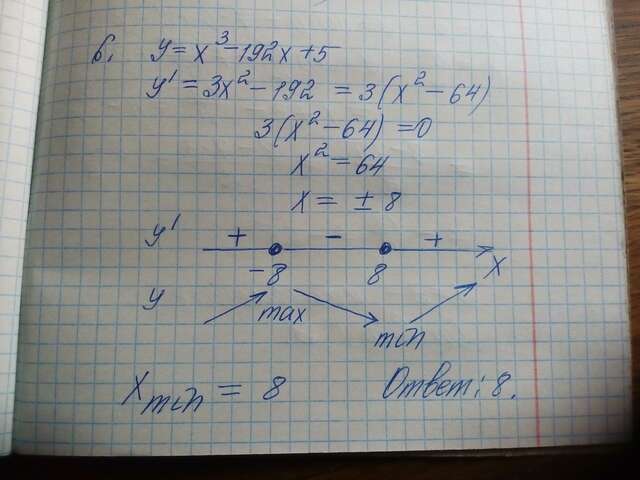 6. y = x³ - 192x + 5
y' = 3x² - 192 = 3(x² - 64)
3(x² - 64) = 0
x² = 64
x = ± 8
y' + - +
-8 8 x
y
max min
x min = 8 Ответ: 8.